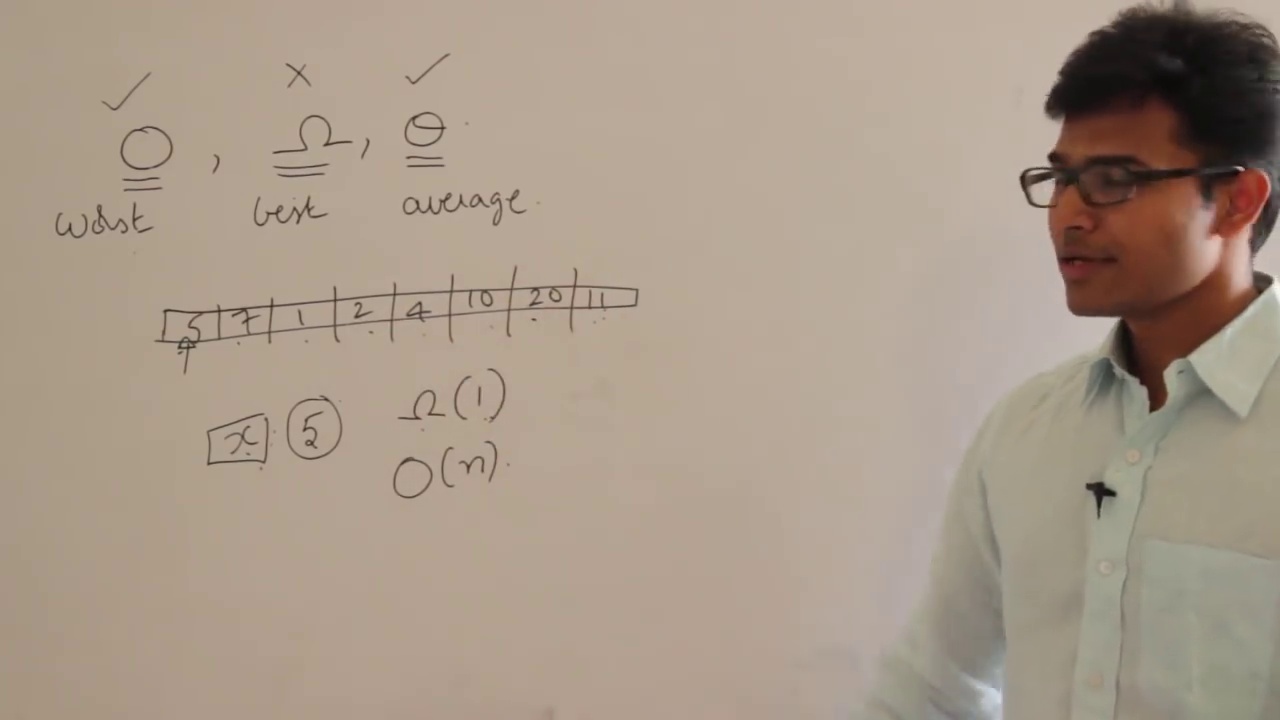 O, Ω, Θ
worst best average
5 7 1 2 4 10 20 11
x 5 Ω(1)
O(n).